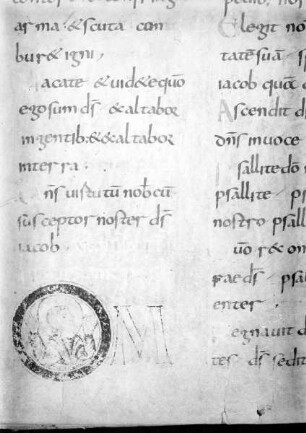 arma · & scuta com
bur& igni ·
acate & uid&e quo
ego sum ds̄ · exaltabor
in gentib: & exaltabor
in terra ·
n̄s uirtutū nob cū
susceptor noster ds̄
iacob ·
OM
legit no
tatē suā ·
iacob quā
Ascendit d
dn̄s in uoce
sallite dō
psallite · ps
nostro psall
ds̄ · psa
enter ·
egnauit d
tes · ds̄ sedit